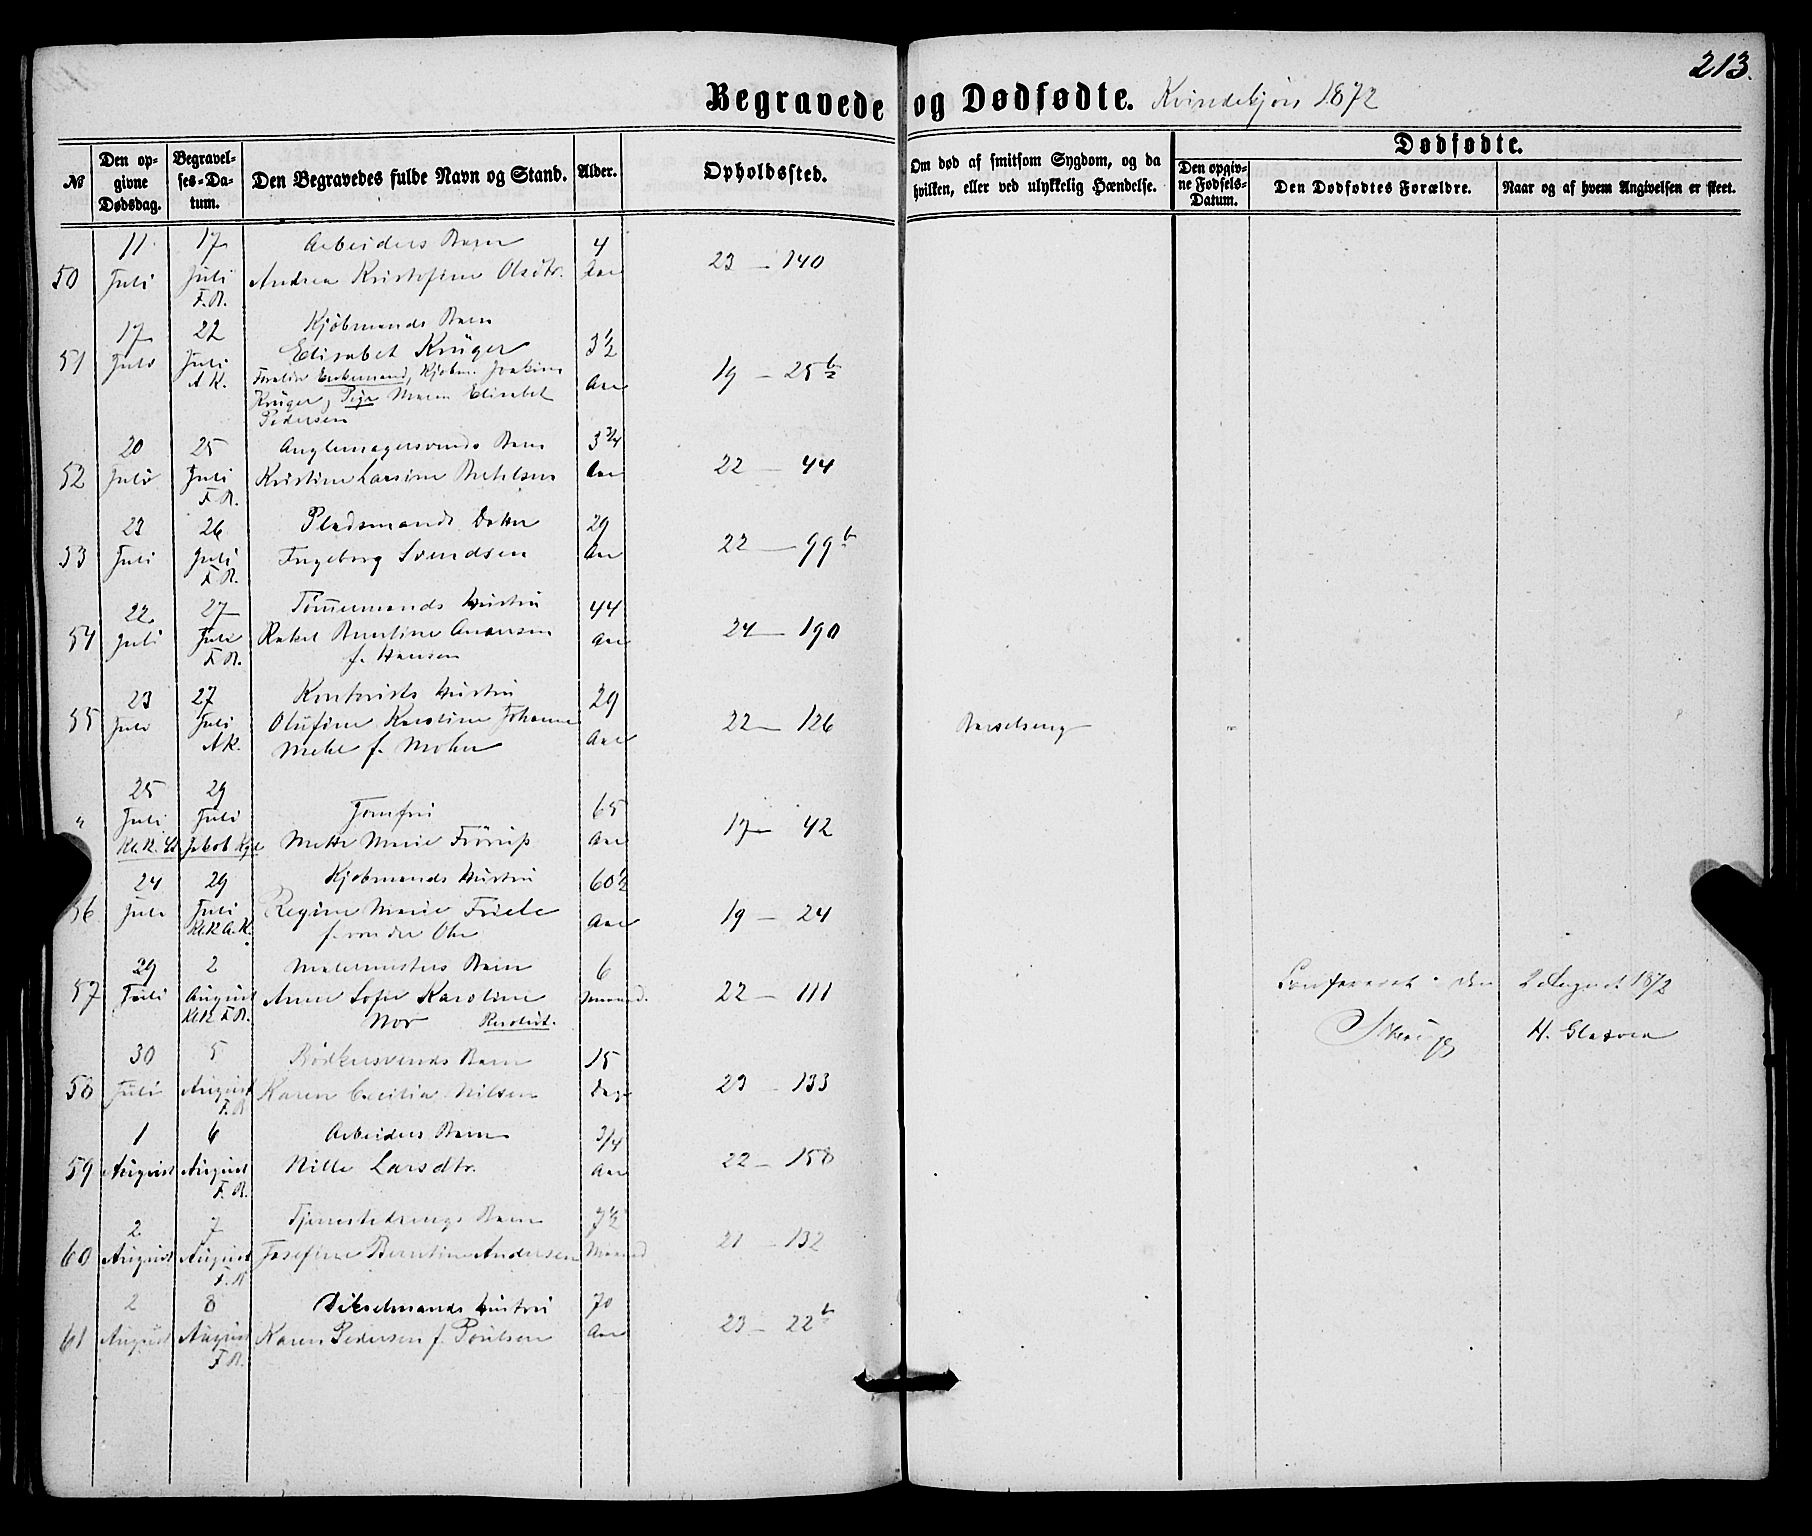 213.
Begravede og Dødfødte. Kvindekjøn 1872
№
Den opgivne Dødsdag.
Begravelses-Datum.
Den Begravedes fulde Navn og Stand.
Alder.
Opholdssted.
Om død af smitsom Sygdom, og da hvilken, eller ved ulykkelig Hændelse.
Dødfødte.
Den opgivne Fødsels-Datum.
Den Dødfødtes Forældre.
Naar og af hvem Angivelsen er skeet.
11 17 Arbeiders Barn 4
50 Juli Juli Andrea Kristofine Olsdtr. Aar 23 — 140
F. R.
17 22 Kjøbmands Barn
51 Juli Juli Elisabet Krüger 3½ Aar 19 — 25 b
A K. Forældre Enkemand, Kjøbm. Joakim
Krüger, Pige Maren Elisabet
Pedersen
20 25 Barn 3¾
52 Juli Juli Kristine Aar 22 — 44
F R.
23 26 Pladsmands Datter 29
53 Juli Juli Ingeborg Svendsen Aar 22 — 99 b
F R.
22 27 Tømmermands Hustru 44
54 Juli Juli Rakel Berntine Andersen Aar 24 — 190
F R. f. Hansen
23 27 Kontorists Hustru 29
55 Juli Juli Olufine Karoline Johanne Aar 22 — 126 Barselseng
A K. f.
25 29 Jomfru 65
" Juli Juli Mette Marie Aar 17 — 42
Kl. R. St Jakob Kgd
24 29 Kjøbmands Hustru 60½
56 Juli Juli Regine Marie Friele Aar 19 — 24
Kl. R A. K. f. von der Ohe
29 2 Malermesters Barn 6
57 Juli August Anne Sofie Karoline Maaned. 22 — 111
Kl R F. R. Nor
Confereret den 2 August 1872
H. Glatved
30 5 Bødkersvends Barn 15
58 Juli August Karen Cecilia Nilsen Dage 23 — 133
F. R
1 6 Arbeiders Barn 3/4
59 August August Nille Larsdtr. Aar 22 — 158
F. R.
2 7 Tjenestedrengs Barn 7½
60 August August Josefine Berntine Andersen Maaned 21 — 132
F. R
2 8 Hustru 70
61 August August Karen Pedersen f. Poulsen Aar 23 — 22 b
F R.